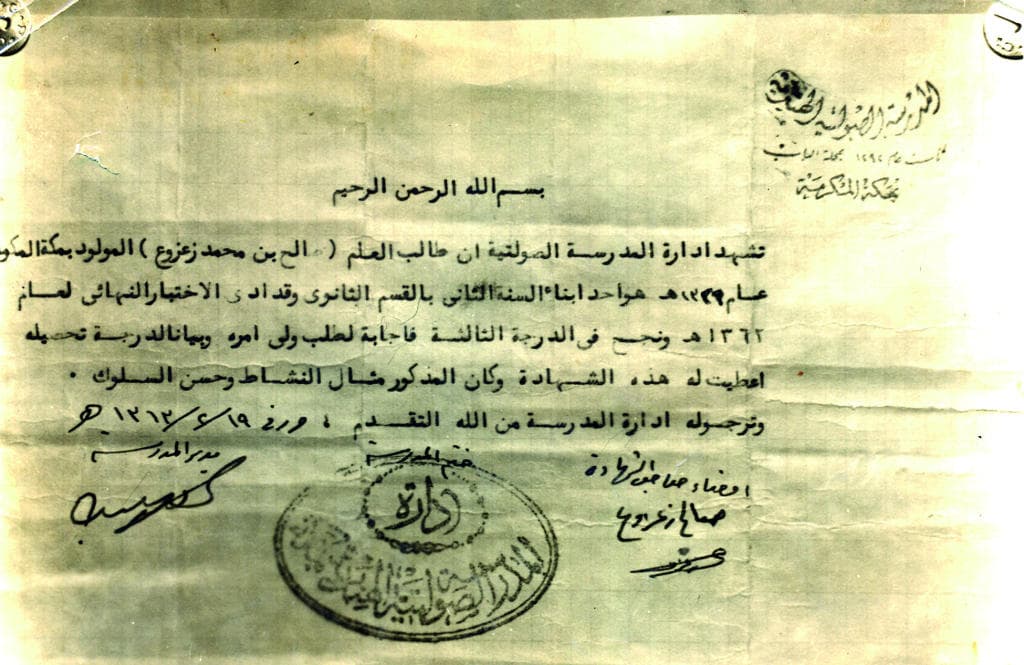 المدرسة الصولتية الهندية
تأسست عام ١٢٩٢ بمحلة الباب
بمكة المكرمة
بسم الله الرحمن الرحيم
تشهد ادارة المدرسة الصولتية ان طالب العلم ( صالح بن محمد زعزوع ) المولود بمكة المكر
عام ١٣٢٩هـ هو احد ابناء السنة الثاني بالقسم الثانوى وقد ادى الاختبار النهائى لعام
١٣٦٢هـ ونجح فى الدرجة الثالثة فاجابة لطلب ولى امره وبيانا لدرجة تحصيله
اعطيت له هذه الشهادة وكان المذكور مثال النشاط وحسن السلوك .
وترجو له ادارة المدرسة من الله التقدم ، حرر فى ١٩/٢/١٣٦٣ هـ
مدير المدرسة
ختم المدرسة
امضاء صاحب الشهادة
صالح زعزوع
ادارة
المدرسة الصولتية الهندية